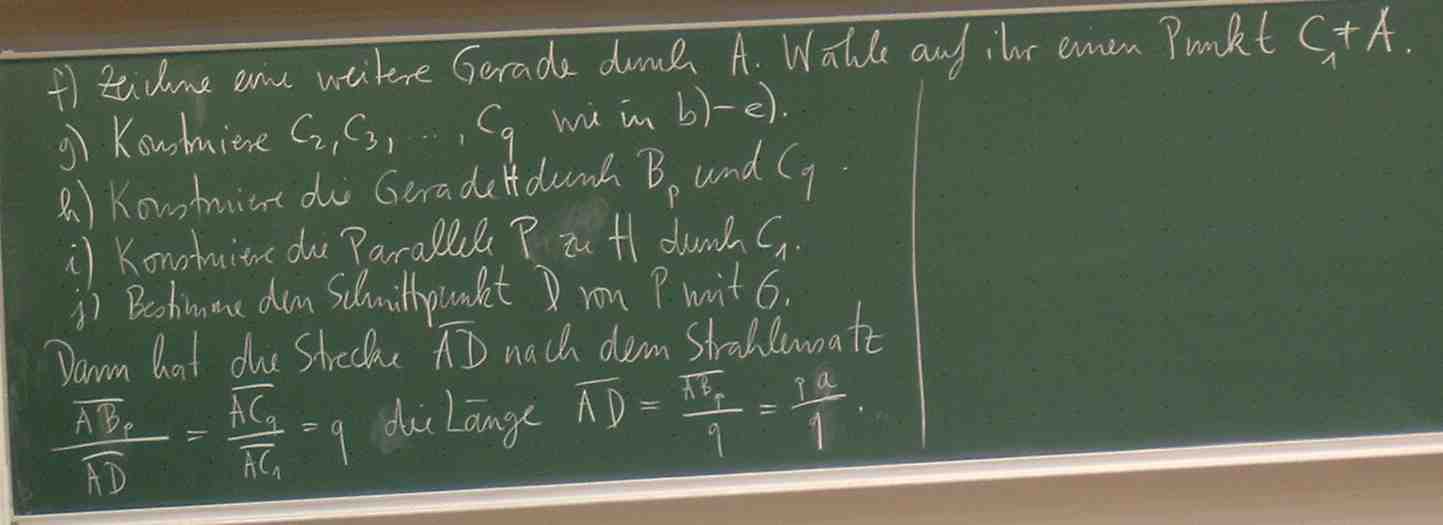 f) Zeichne eine weitere Gerade durch A. Wähle auf ihr einen Punkt C₁ ≠ A.
g) Konstruiere C₂, C₃, ..., C_q wie in b)-e).
h) Konstruiere die Gerade H durch B_p und C_q.
i) Konstruiere die Parallele P zu H durch C₁.
j) Bestimme den Schnittpunkt D von P mit G.
Dann hat die Strecke A̅D̅ nach dem Strahlensatz
A̅B̅_p / A̅D̅ = A̅C̅_q / A̅C̅₁ = q die Länge A̅D̅ = A̅B̅_p / q = p a / q.